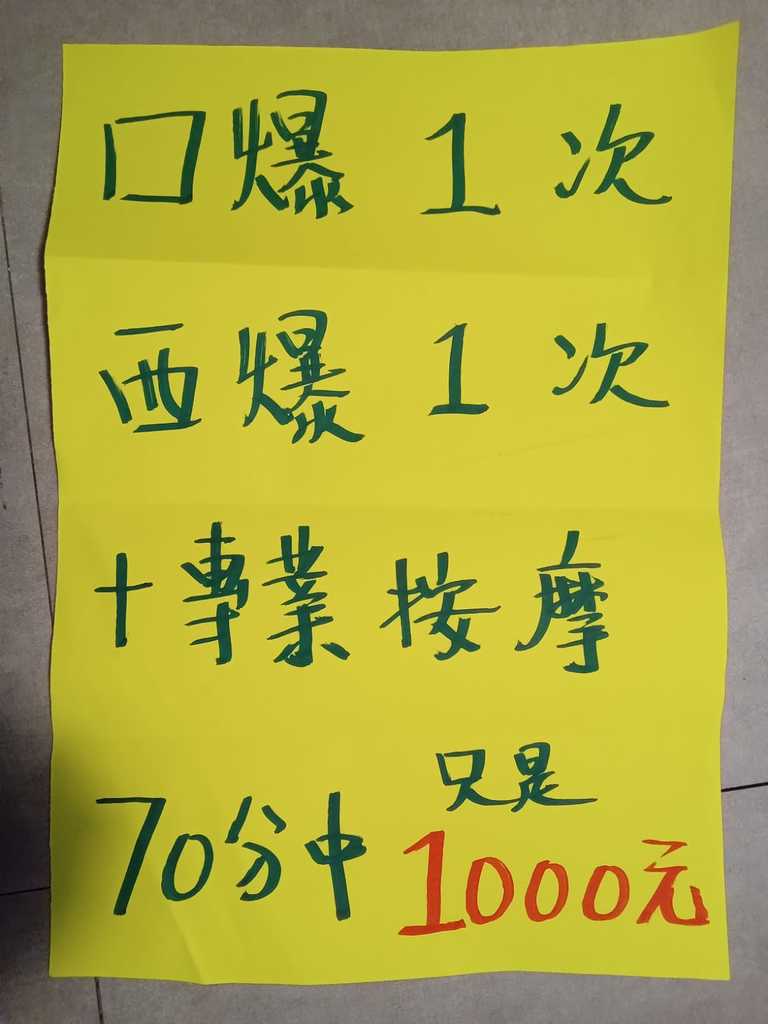 口爆1次
西爆1次
+專業按摩
70分中 只是
1000元